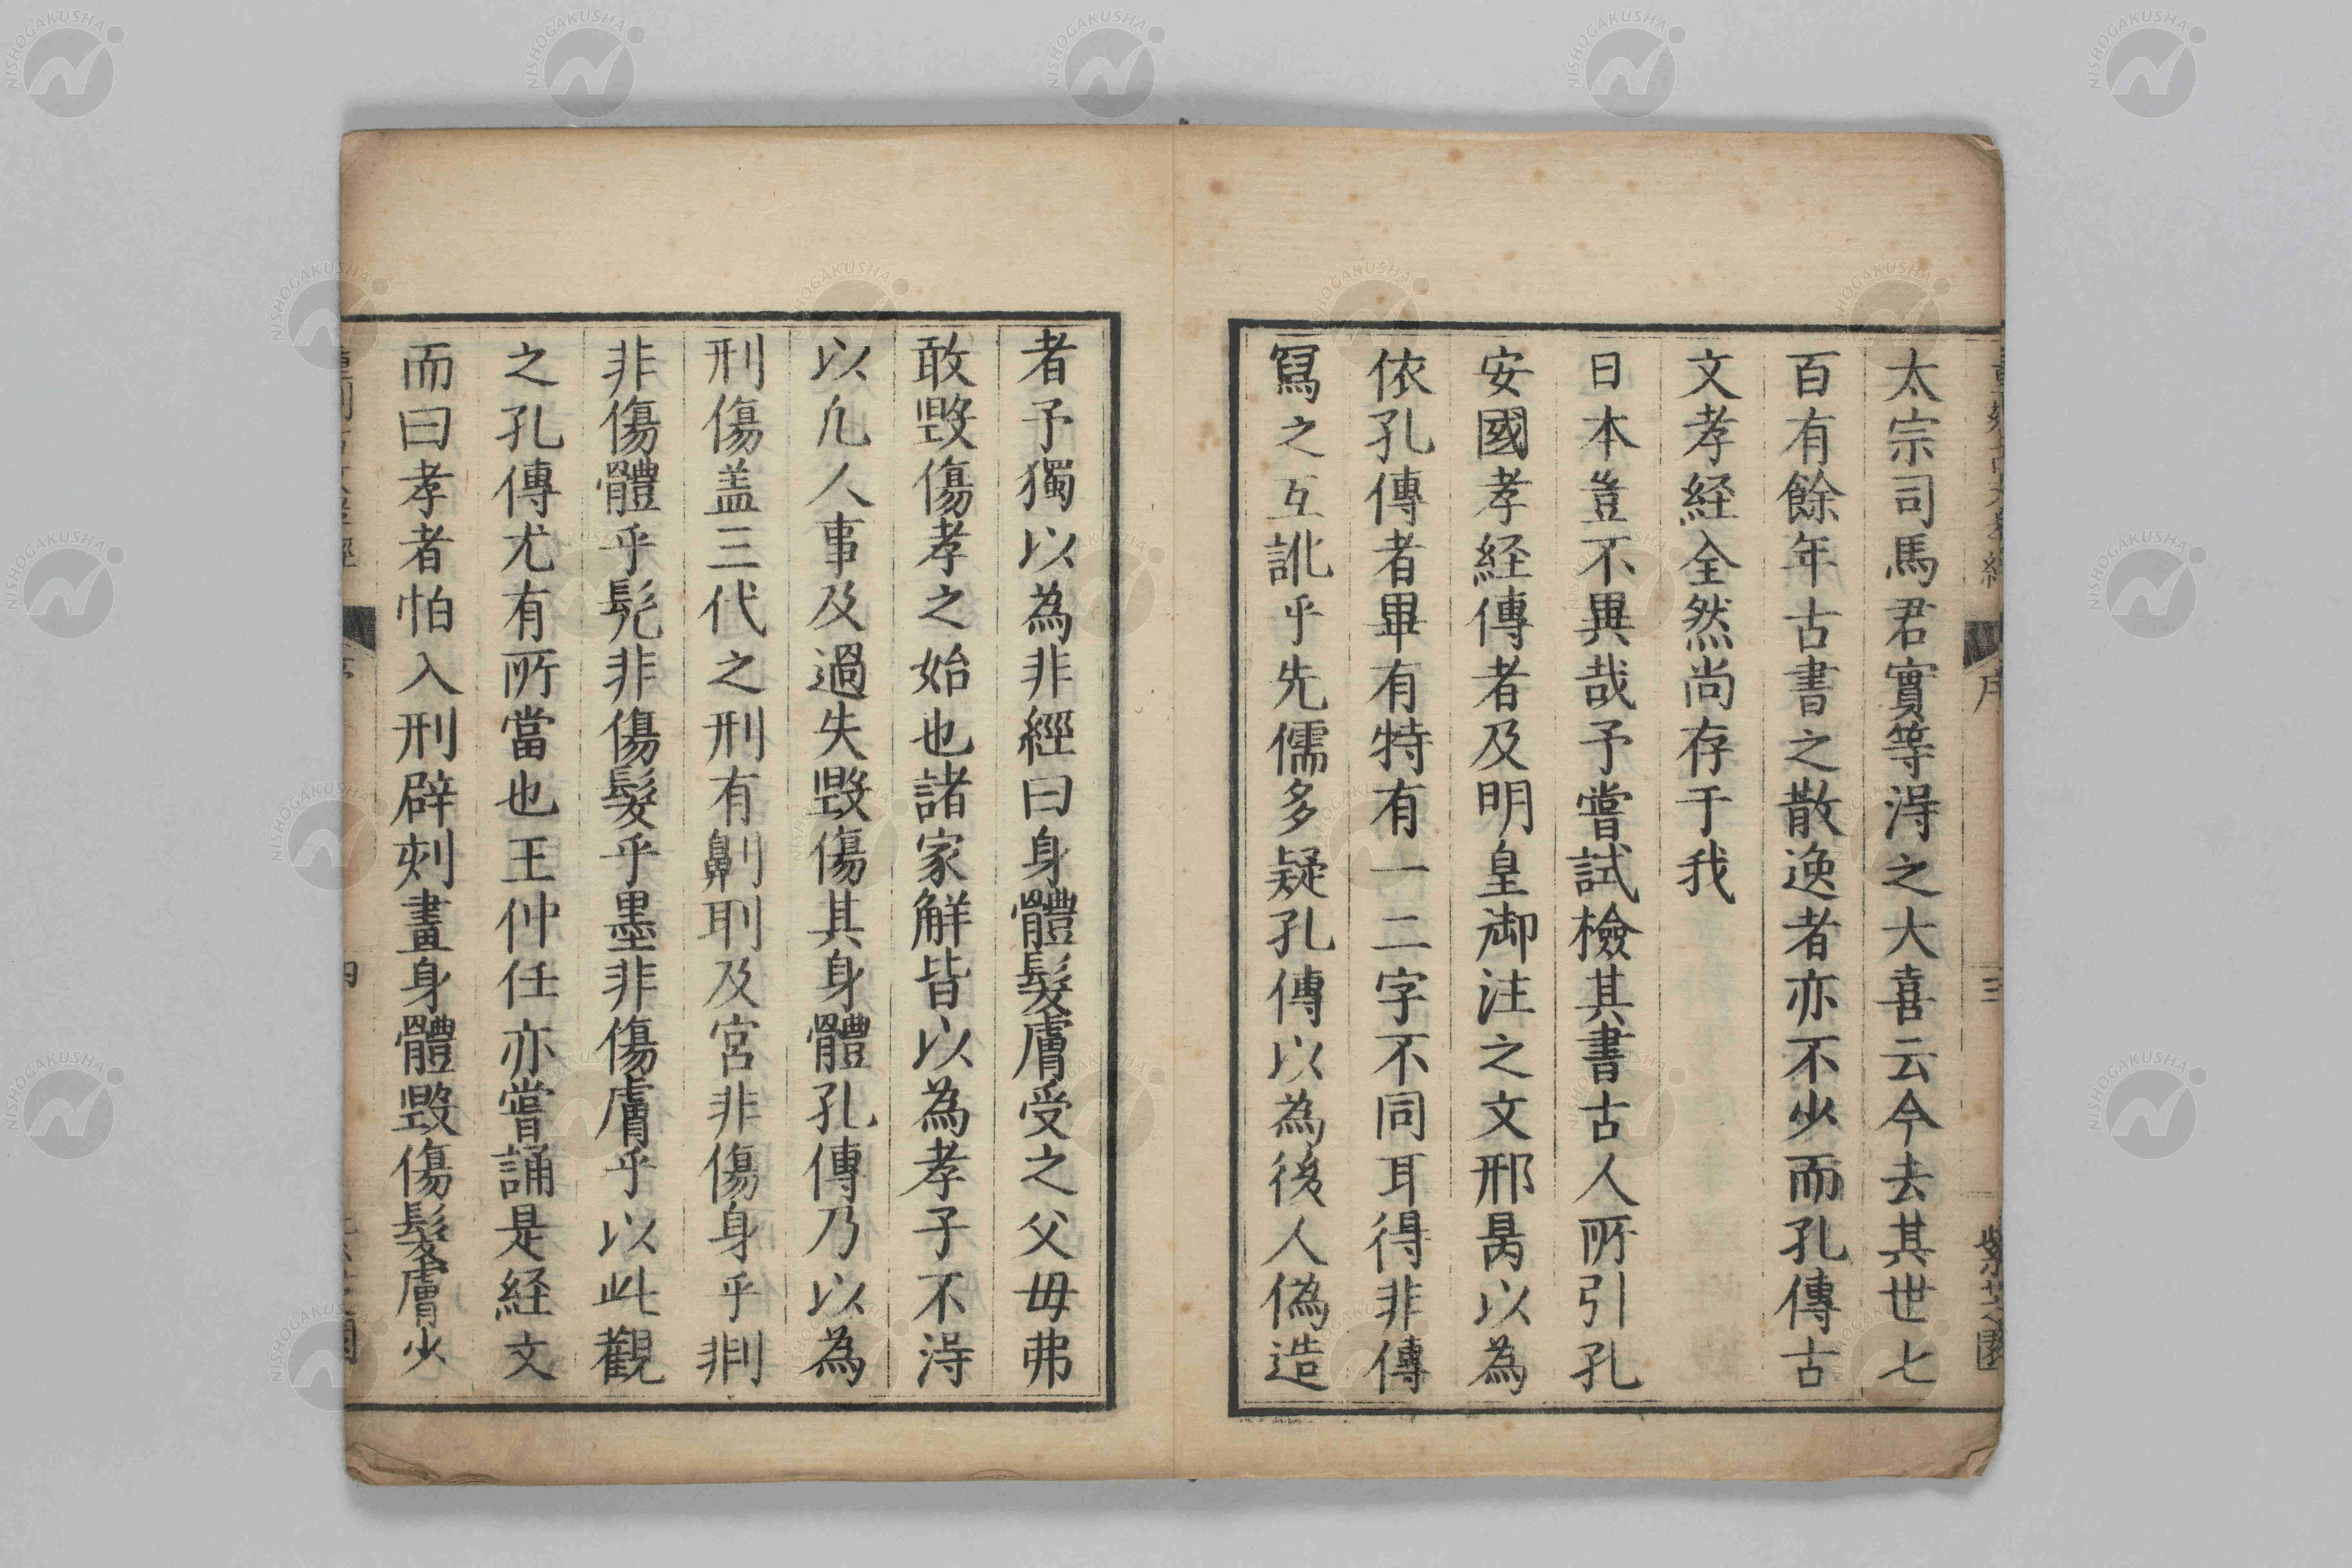 太宗司馬君實等淂之大喜云今去其世七
百有餘年古書之散逸者亦不少而孔傳古
文孝経全然尚存于我
日本豈不異哉予嘗試檢其書古人所引孔
安國孝経傳者及明皇御注之文邢昺以為
依孔傳者畢有特有一二字不同耳得非傳
寫之互訛乎先儒多疑孔傳以為後人偽造
者予獨以為非經曰身體髮膚受之父母弗
敢毀傷孝之始也諸家解皆以為孝子不淂
以凢人事及過失毀傷其身體孔傳乃以為
刑傷盖三代之刑有劓刵及宮非傷身乎剕
非傷體乎髡非傷髮乎墨非傷膚乎以此觀
之孔傳尤有所當也王仲任亦嘗誦是経文
而曰孝者怕入刑辟刺畫身體毀傷髮膚少
NISHOGAKUSHA